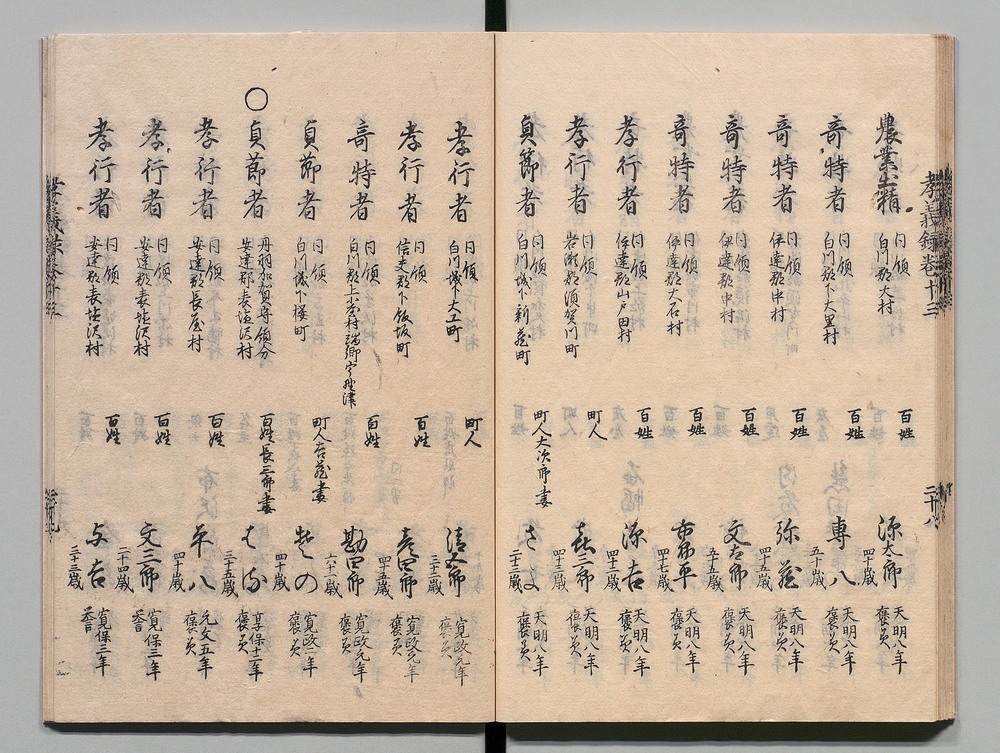 孝義録巻十三
二十八
農業出精
同領
白川郡大村
百姓
源太郎
四十歳
天明八年
褒美
奇特者
同領
白川郡下大里村
百姓
専八
五十歳
天明八年
褒美
奇特者
同領
伊達郡中村
百姓
弥蔵
天明八年
褒美
奇特者
同領
伊達郡中村
百姓
文右衛
五十五歳
天明八年
褒美
奇特者
同領
伊達郡大石村
百姓
市郎平
四十七歳
天明八年
褒美
孝行者
同領
伊達郡山戸田村
百姓
源吉
四十五歳
天明八年
褒美
孝行者
同領
岩瀬郡須賀川町
町人
喜三郎
四十三歳
天明八年
褒美
貞節者
同領
白川城下新蔵町
町人大次郎妻
さよ
二十三歳
天明八年
褒美
孝行者
同領
白川城下大工町
町人
清五郎
三十二歳
寛政元年
褒美
孝行者
同領
信夫郡下飯坂町
百姓
四十五歳
寛政元年
褒美
奇特者
同領
白川郡
百姓
勘四郎
寛政元年
褒美
貞節者
同領
白川城下桜町
町人吉蔵妻
その
四十歳
寛政二年
褒美
○
貞節者
丹羽加賀守領分
安達郡表塩沢村
百姓長三郎妻
三十五歳
享保十二年
褒美
孝行者
同領
安達郡長屋村
百姓
平八
四十歳
元文五年
褒美
孝行者
同領
安達郡表塩沢村
百姓
文三郎
二十四歳
寛保三年
孝行者
同領
安達郡表塩沢村
百姓
与吉
三十三歳
寛保三年